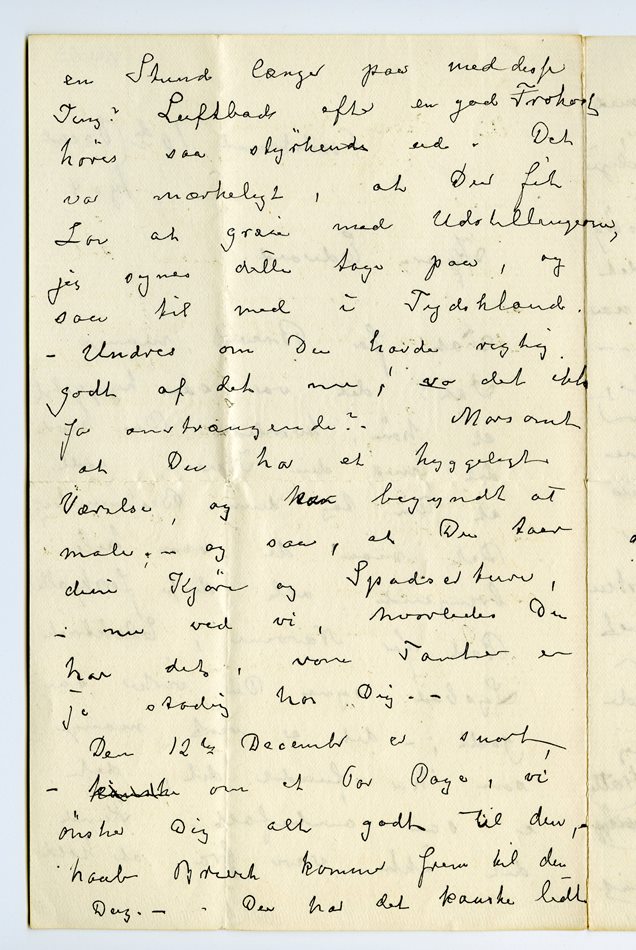 en Stund længer paa med disse
Ting? Luftbads efter en god Frokost
høres saa styrkende ud. Det
var mærkeligt, at Du fik
Lov at greie med Udstillingerne,
jeg synes dette tage paa, og
saa til med i Tydskland.
- Undres om Du havde rigtig
godt af det nu, var det ikke
for anstrængende? - Morsomt
at Du har et hyggeligt
Værelse, og begyndt at
male; - og saa, at Du taar
dine Kjøre og Spadserture,
- nu ved vi, hvorledes Du
har det, vore Tanker er
jo stadig hos Dig. -
Den 12te December er snart,
- om et Par Dage, vi
ønsker Dig alt godt til den,
haab Brevet kommer frem til den
Dag. - - Du har det kanske lidt